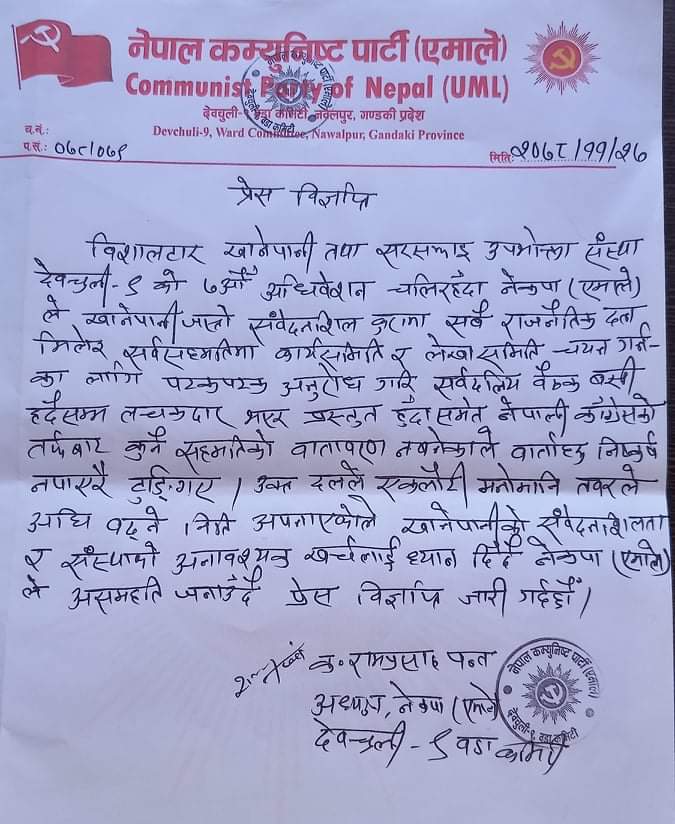 नेपाल कम्युनिष्ट पार्टी (एमाले)
Communist Party of Nepal (UML)
देवचुली-९ वडा कमिटी, नवलपुर, गण्डकी प्रदेश
Devchuli-9, Ward Committee, Nawalpur, Gandaki Province
च.नं.:
प.सं.: ०७८/०७९
मितिः २०७८/११/२७
प्रेस विज्ञप्ति
विशालटार खानेपानी तथा सरसफाइ उपभोक्ता संस्था
देवचुली-९ को ७औँ अधिवेशन चलिरहँदा नेकपा (एमाले)
ले खानेपानी जास्तो संवेदनाशिल कुरामा सबै राजनैतिक दल
मिलेर सर्वसहमतिमा कार्यसमिति र लेखा समिति चयन गर्न-
का लागि पटकपटक अनुरोध गरि सर्वदलिय बैठक बस्ती
हदैसम्म लच्चकदार भएर प्रस्तुत हुँदा समेत नेपाली काँग्रेसको
तर्फबाट कुनै सहमतिको वातावरण नबनेकाले वार्ताहरु निष्कर्ष
नपाएरै टुङ्गिए । उक्त दलले एकलौटी मनोमानि तवरले
अघि बढ्ने निति अपनाएकोले खानेपानीको संवेदनाशिलता
र संस्थाको अनावश्यक खर्चलाई ध्यान दिँदै नेकपा (एमाले)
ले असहमति जनाउँदै प्रेस विज्ञप्ति जारी गर्दछौँ ।
क. रामप्रसाद पन्त
अध्यक्ष, नेकपा (एमाले)
देवचुली-९ वडा कमिटी
नेपाल कम्युनिष्ट पार्टी (एमाले)
देवचुली-९, वडा कमिटी